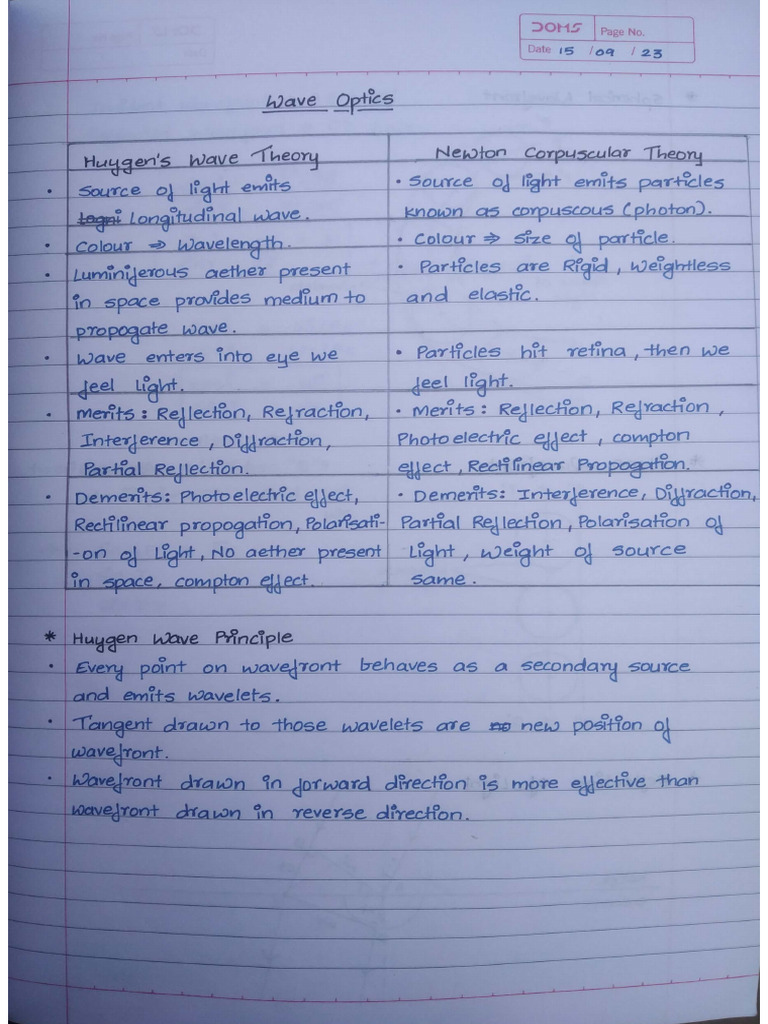 DOMS
Page No.
Date 15 / 09 / 23
Wave Optics
Huygen's Wave Theory
Newton Corpuscular Theory
• Source of light emits
Longitudinal wave.
• Source of light emits particles
known as corpuscous (photon).
• Colour ⇒ Wavelength.
• Colour ⇒ Size of particle.
• Luminiferous aether present
in space provides medium to
propogate wave.
• Particles are Rigid, weightless
and elastic.
• Wave enters into eye we
feel light.
• Particles hit retina, then we
feel light.
• Merits: Reflection, Refraction,
Interference, Diffraction,
Partial Reflection.
• Merits: Reflection, Refraction,
Photoelectric effect, compton
effect, Rectilinear Propogation.
• Demerits: Photoelectric effect,
Rectilinear propogation, Polarisati-
-on of Light, No aether present
in space, compton effect.
• Demerits: Interference, Diffraction,
Partial Reflection, Polarisation of
Light, weight of source
same.
* Huygen Wave Principle
• Every point on wavefront behaves as a secondary source
and emits wavelets.
• Tangent drawn to those wavelets are new position of
wavefront.
• Wavefront drawn in forward direction is more effective than
wavefront drawn in reverse direction.